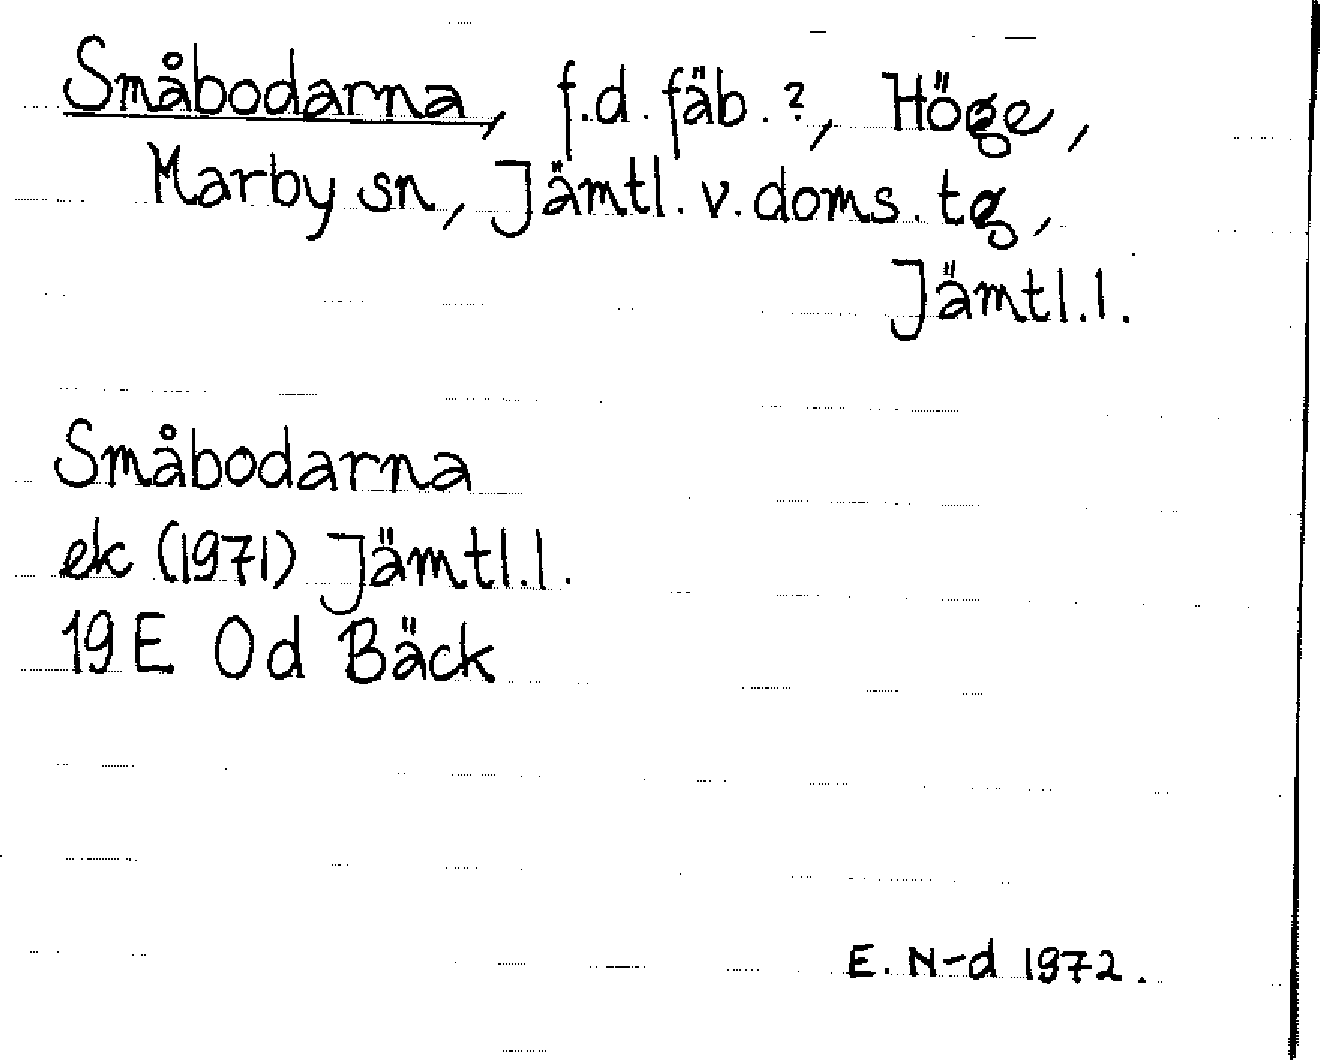 Småbodarna, f.d. fäb.?, Höge,
Marby sn, Jämtl. v. doms. tg,
Jämtl. l.
Småbodarna
ek (1971) Jämtl. l.
19E 0d Bäck
E. N-d 1972.